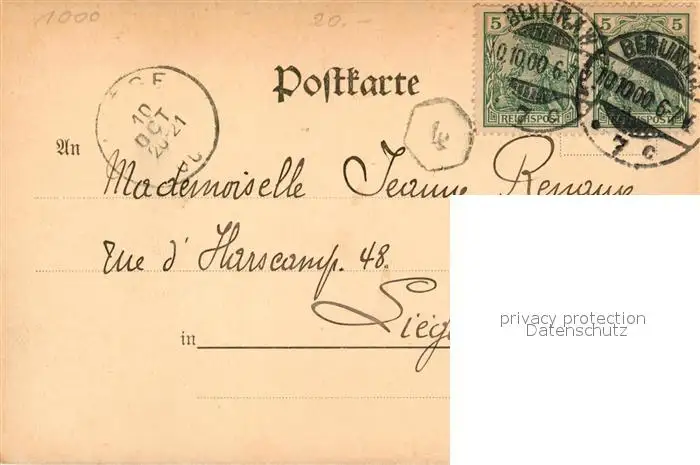 1000 20.-
5 5
BERLIN N.W. BERLIN
10.10.00.6-7 10.10.00.6-
REICHSPOST REICHSPOST
7 c 7 c
Postkarte
10
OCT
20-21
4
An Mademoiselle Jeanne
rue d'Harscamp. 48.
in Liége
privacy protection
Datenschutz